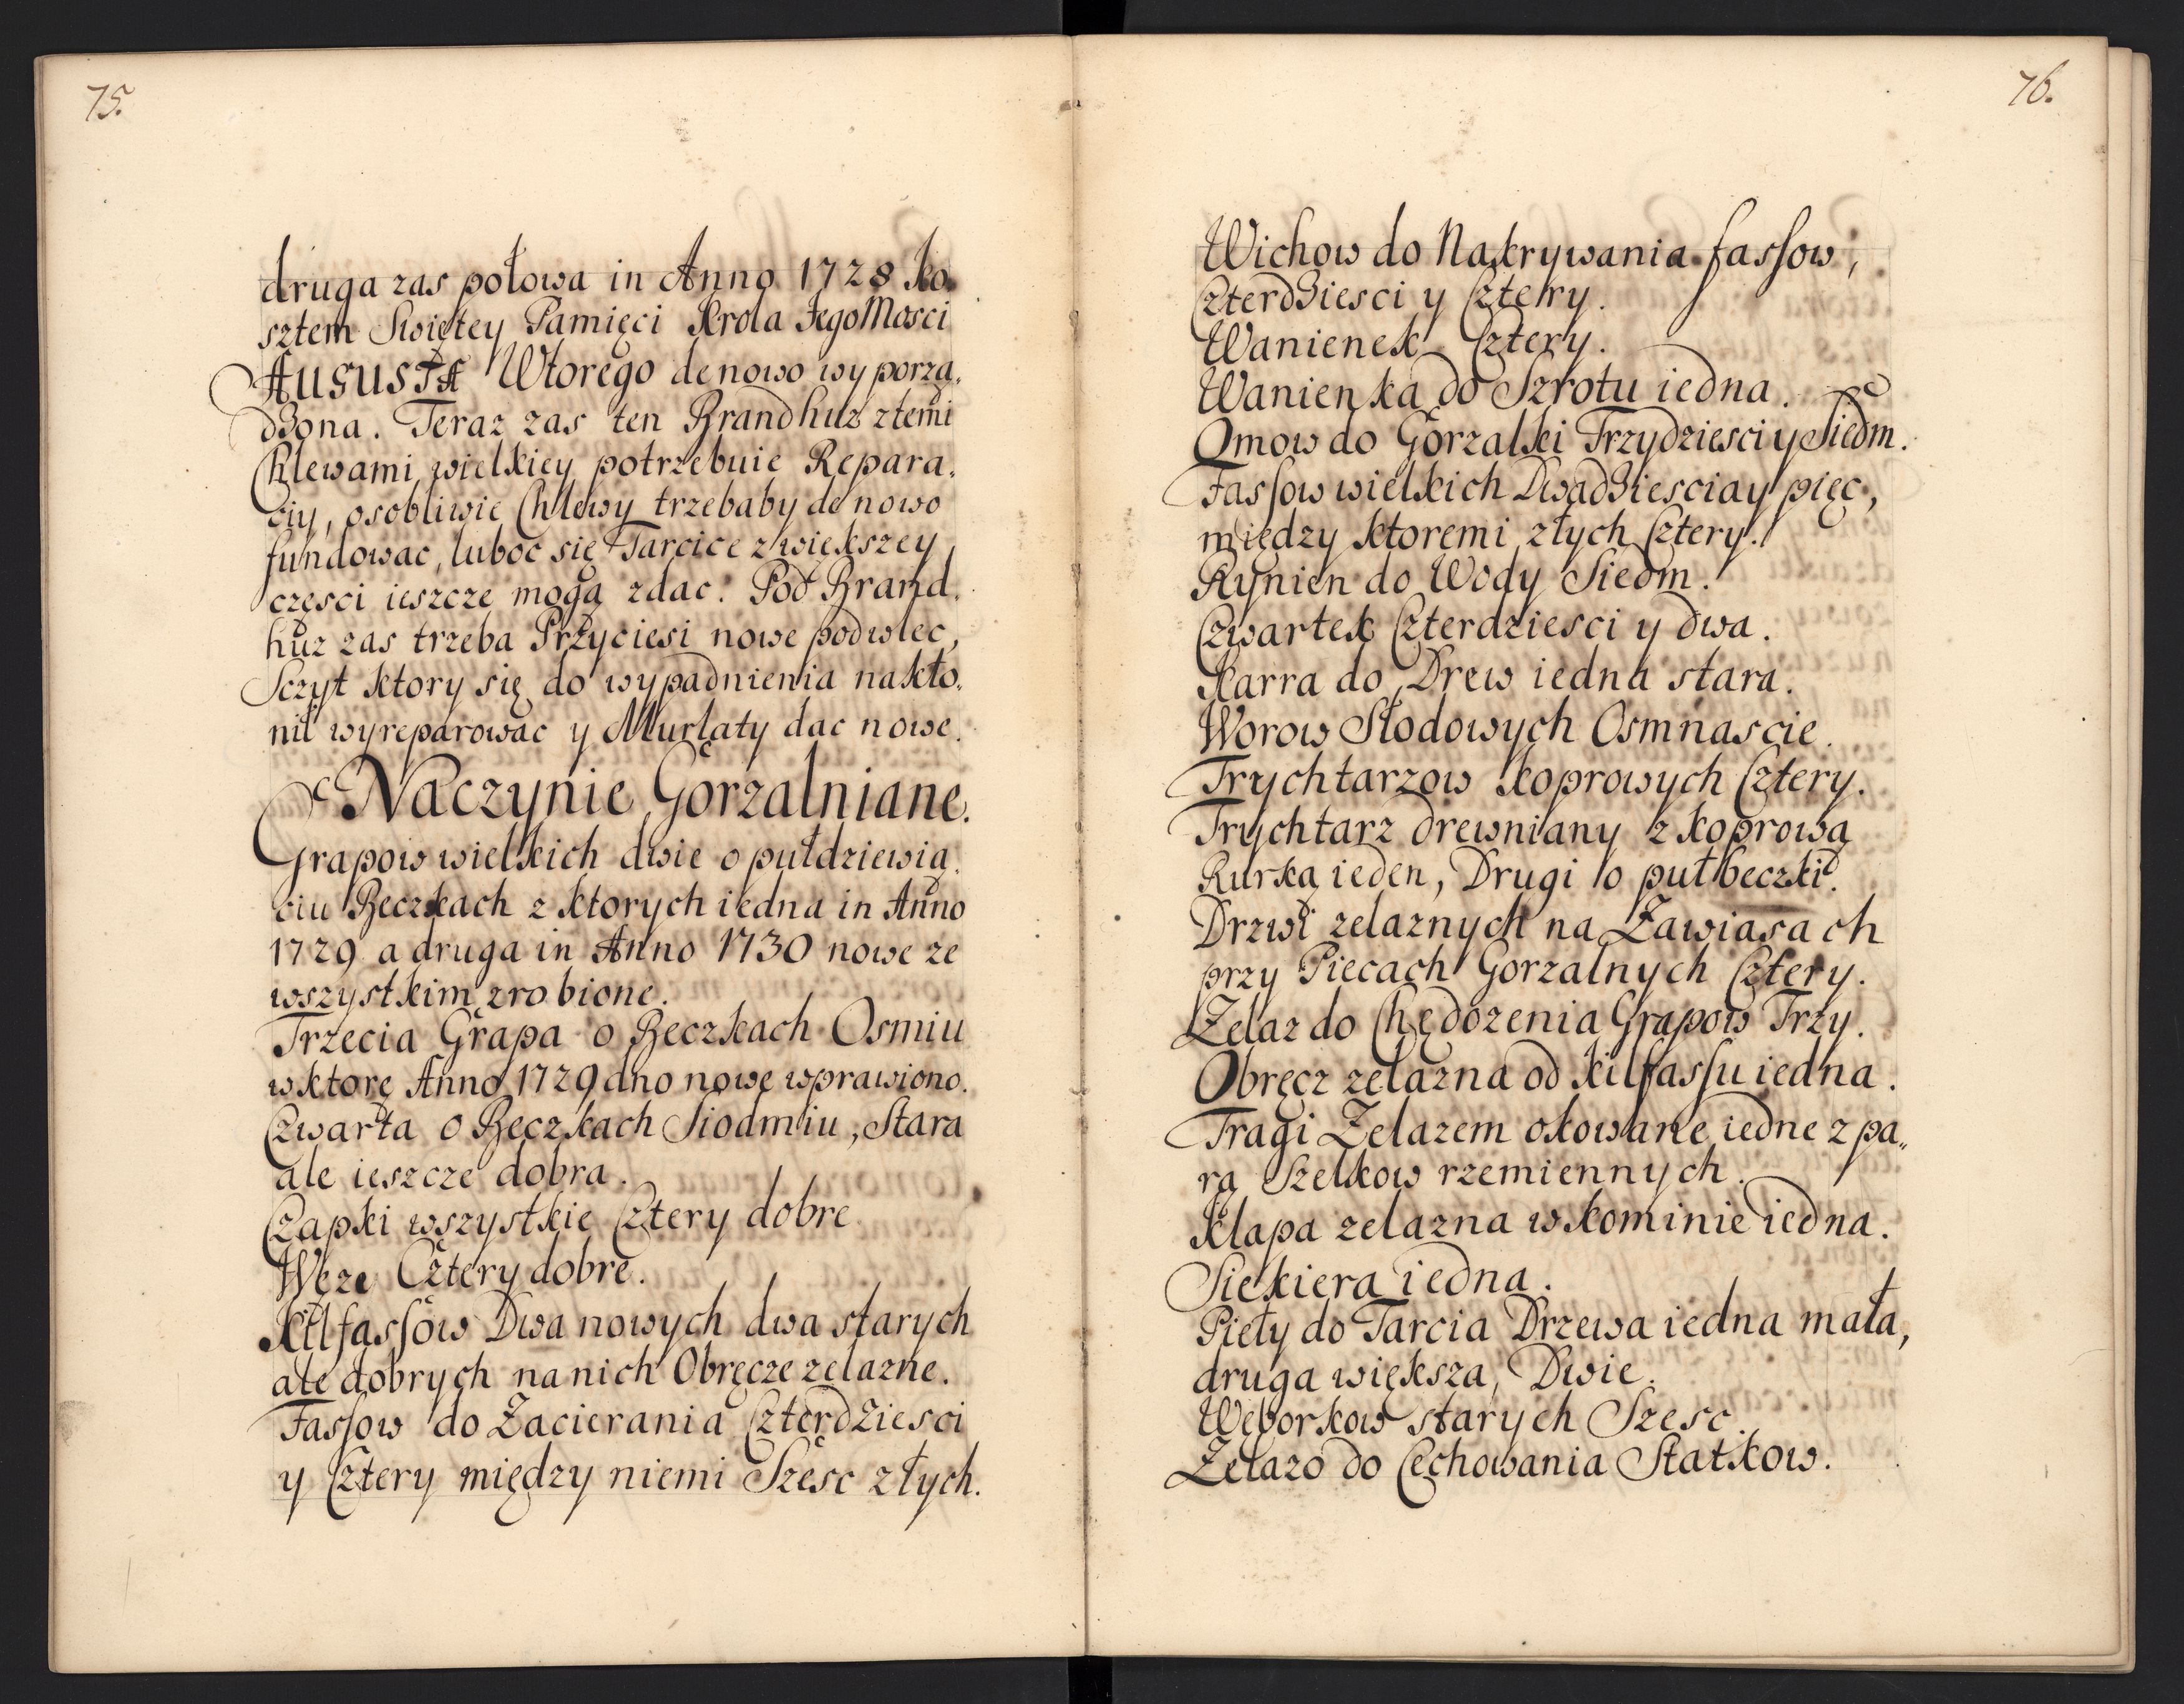 75.
druga zas połowa in Anno 1728 ko„
sztem Swiętey Pamięci Krola JegoMosci
AUGUSTA Wtorego de nowo wyporzą„
dzona. Teraz zas ten Brandhuz z temi
Chlewami wielkiey potrzebuie Repara„
ciy, osobliwie Chlewy trzebaby de nowo
fundowac, luboc się Tarcice z większey
częsci ieszcze mogą zdac. Pod Brand„
huz zas trzeba Przyciesi nowe podwlec,
Sczyt ktory się do wypadnienia nakło„
nił wyreparowac y Murłaty dac nowe.
Naczynie Gorzalniane.
Grapow wielkich dwie o pułdziewią„
ciu Beczkach z ktorych iedna in Anno
1729 a druga in Anno 1730 nowe ze
wszystkim zrobione.
Trzecia Grapa o Beczkach Osmiu
w ktorę Anno 1729 dno nowe wprawiono.
Czwarta o Beczkach Siodmiu, Stara
ale ieszcze dobra.
Czapki wszystkie Cztery dobre
Węze Cztery dobre.
Kilfassow Dwa nowych dwa starych
ale dobrych na nich Obręcze zelazne.
Fassow do Zacierania Czterdziesci
y Cztery między niemi Szesc złych.
76.
Wichow do Nakrywania fassow,
Czterdziesci y Cztery.
Wanienek Cztery.
Wanienka do Szrotu iedna.
Omow do Gorzalki Trzydziesci y Siedm.
Fassow wielkich Dwadziescia y pięc,
między ktoremi złych Cztery.
Rynien do Wody Siedm.
Czwartek Czterdziesci y dwa.
Karra do Drew iedna stara.
Worow Słodowych Osmnascie.
Trychtarzow koprowych Cztery.
Trychtarz drewniany z koprową
Rurką ieden, Drugi o pułbeczki.
Drzwi zelaznych na Zawiasach
przy Piecach Gorzalnych Cztery.
Zelaz do Chędozenia Grapow Trzy.
Obręcz zelazna od kilfassu iedna.
Tragi Zelazem okowane iedne z pa„
rą Szelkow rzemiennych.
Klapa zelazna w kominie iedna.
Siekiera iedna.
Piely do Tarcia Drzewa iedna mała,
druga większa, Dwie.
Węborkow starych Szesc.
Zelazo do Cechowania Statkow.